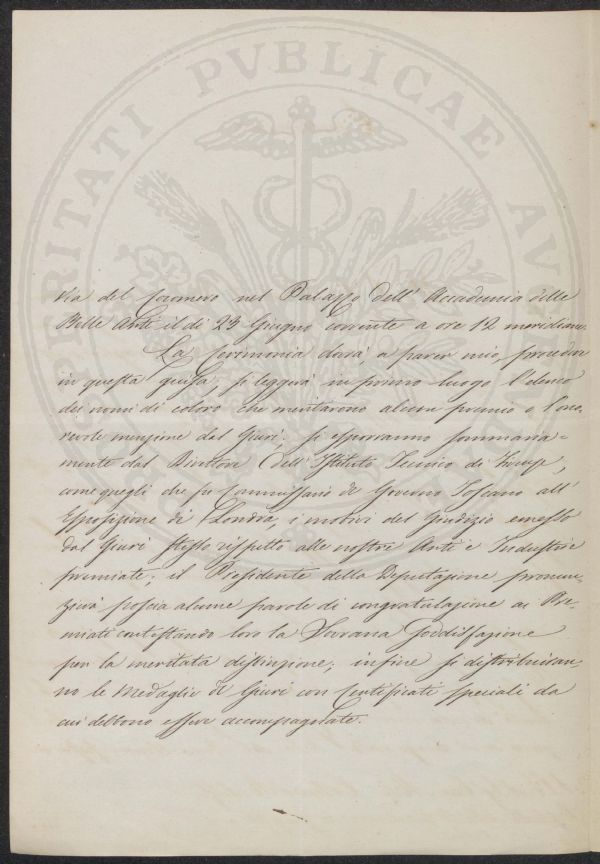 PROSPERITATI PVBLICAE AVGENDAE
via del Cocomero nel Palazzo dell' Accademia delle
Belle Arti il dì 23 Giugno corrente a ore 12 meridiane.
La Cerimonia dovrà, a parer mio, procedere
in questa guisa, si leggerà in primo luogo l'elenco
dei nomi di coloro che meritarono alcun premio o l'ono,
revole menzione dal Giurì; si esporranno sommaria=
mente dal Direttore dell' Istituto Tecnico di Firenze,
come quegli che fu Commissario di Governo Toscano all'
Esposizione di Londra, i motivi del Giudizio emesso
dal Giurì stesso rispetto alle nostre Arti e Industrie
premiate; il Presidente della Deputazione pronun,
zierà poscia alcune parole di congratulazione ai Pre,
miati contestando loro la Sovrana Soddisfazione
per la meritata distinzione; infine si distribuiran,
no le Medaglie de Giurì con Certificati speciali da
cui debbono essere accompagnate.